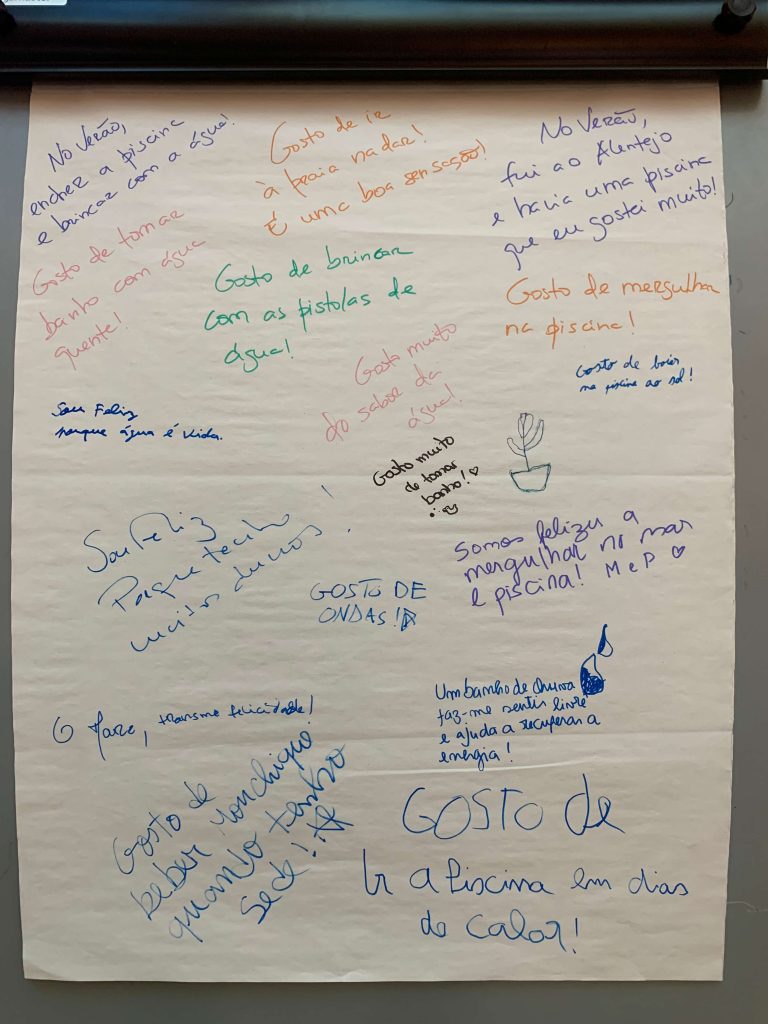 No Verão,
encher a piscina
e brincar com a água!
Gosto de ir
à praia nadar!
É uma boa sensação!
No Verão,
fui ao Alentejo
e havia uma piscina
que eu gostei muito!
Gosto de tomar
banho com água
quente!
Gosto de brincar
com as pistolas de
água!
Gosto de mergulhar
na piscina!
Gosto muito
do sabor da
água!
Gosto de boiar
na piscina ao sol!
Sou Feliz
porque água é vida.
Gosto muito
de tomar
banho!
Sou Feliz
Porque tenho
muitos !
Somos felizes a
mergulhar no mar
e piscina! M e P
GOSTO DE
ONDAS!
Um bamho de chuva
faz-me sentir livre
e ajuda a recuperar a
energia!
O Mare, transme felicidade!
Gosto de
beber monchique
quando tenho
sede!
GOSTO de
Ir a Piscina em dias
de calor!